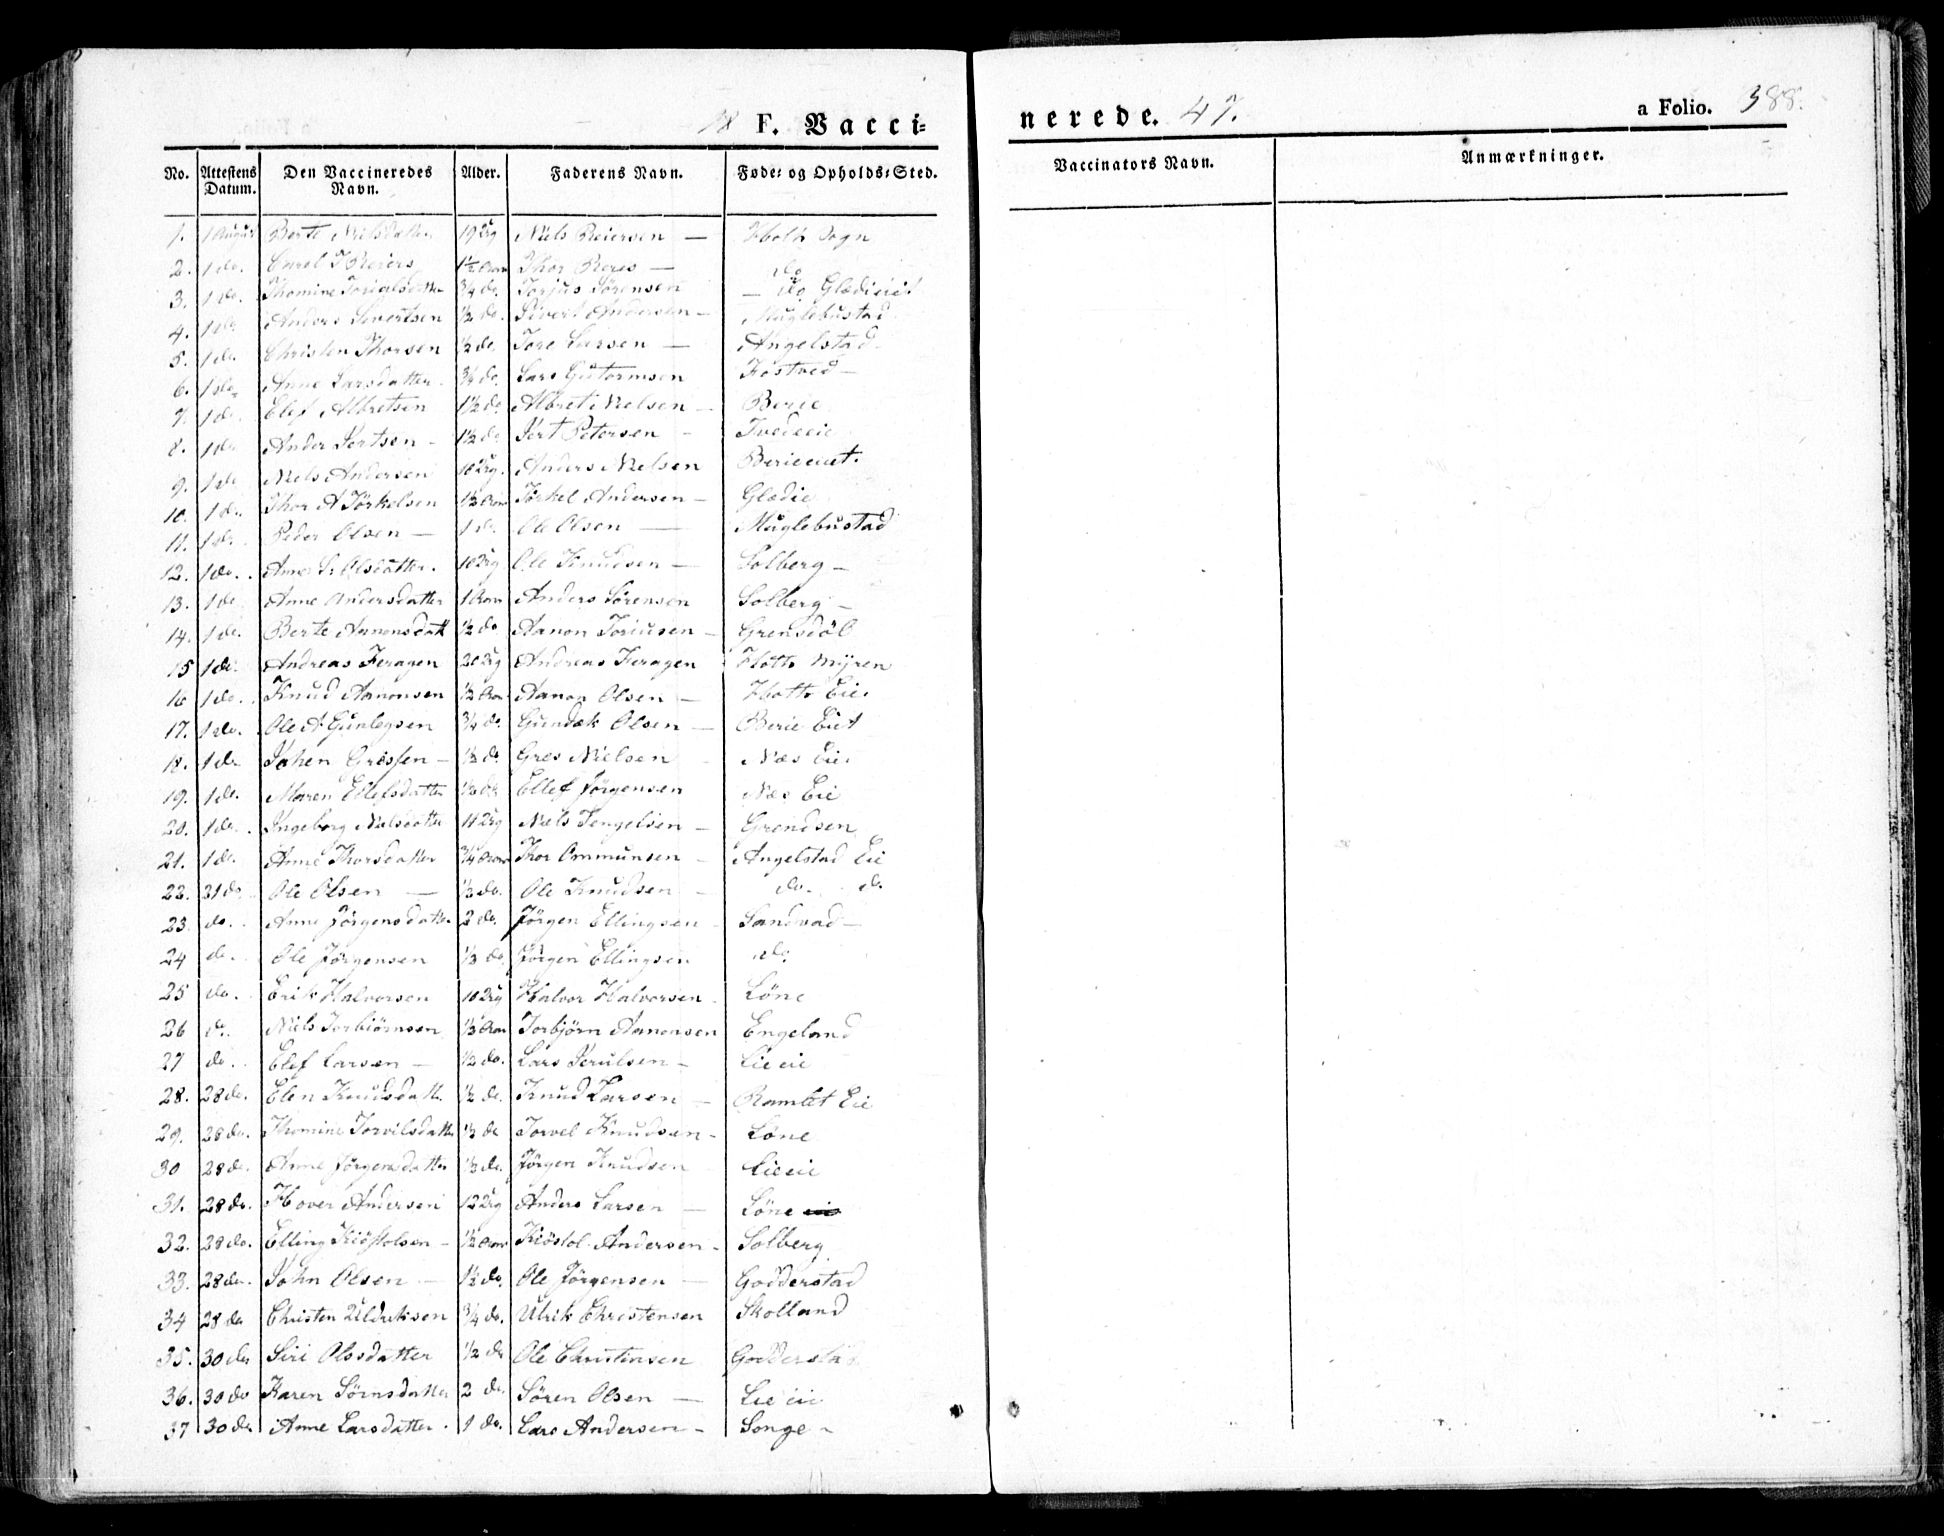 18 F. Vacci=
nerede. 47. a Folio. 388.
No. Attestens Datum. Den Vaccineredes Navn. Alder. Faderens Navn. Føde= og Opholds=Sted. Vaccinators Navn. Anmærkninger.
1. 1 August Berte Nilsdatter 19 Arg Niels Reiersen — Holts Sogn
2. 1 do. 1½ Thor — do
3. 1 do. Thomine ¾ do. Torjus Sörensen — do
4. 1 do Anders Sivertsen ½ do. Sivert Andersen — Muglebustad
5. 1 do. Christen Thorsen ½ do. Tore Larsen — Angelstad
6. 1 do. Anne Larsdatter. ¾ do. Lars Gutormsen Fostved —
7. 1 do. Elef Albretsen 1½ do Albret Nielsen — Berie
8. 1 do Ander Sertsen — 1½ do Sert Petersen — Tvedeeie
9. 1 do Niels Andersen 10 Arg. Anders Nielsen Berieeiet.
10. 1 do. Thor A Törkelsen 1½ Törkel Andersen — Glædie
11. 1 do. Peder Olsen — 1 do Ole Olsen — Muglebustad
12. 1 do. Anne S. Olsdatter. 10 Arg Ole Knudsen — Solberg —
13. 1 do Anne Andersdatter 1 Anders Sörensen Solberg —
14. 1 do. Berte Aanonsdatt ½ do Aanon Joriusen — Grensdöl
15 1 do. Andreas Feragen 20 Arg Andreas Feragen Holts Myren
16 1 do. Knud Aanonsen ½ Aanon Olsen — Holts Eie.
17. 1 do. Ole A Gunlegsen ¾ do. Olsen — Berie Eiet
18. 1 do Johen Gressen — ½ do Gres Nielsen — Næs Eie.
19. 1 do. Maren Ellefsdatter ½ do Ellef Jörgensen Næs Eie
20. 1 do. Ingeborg Nielsdatter 11 Arg Niels Tengelsen — Grendsen
21. 1 do. Anne Thorsdatter ¾ Thor Ommunsen — Angelstad Eie
22. 31 do. Ole Olsen — ½ do. Ole Knudsen — do. do.
23. do. Anne Jörgensdatter 2 do. Jörgen Ellingsen Sandvad —
24 do. Ole Jörgensen ½ do. Jörgen Ellingsen do.
25 do. Erik Halvorsen 10 Arg Halvor Halvorsen. Löne
26 do. Niels Torbiörnsen ½ Torbjörn Aanonsen Engeland
27 do. Elef Larsen — ½ do. Lars — Lieeie
28. 28 do. Elen Knudsdatter ½ do. Knud Larsen — Ramlet Eie
29. 28 do. Thomine Torvilsdatter ½ do Torvel Knudsen — Löne
30 28 do. Anne Jörgensdatter ½ do. Jörgen Knudsen Lieeie
31. 28 do. Hover Andersen 12 Arg Anders Larsen — Löne
32. 28 do. Elling Kiöstolsen — ½ Kiöstol Andersen — Solberg
33. 28 do. John Olsen — 1½ do. Ole Jörgensen — Godderstad
34 28 do Christen Uldriksen ¾ do. Ulrik Christensen Skolland
35. 30 do Siri Olsdatter ½ do Ole Christinsen Godderstad
36. 30 do Karen Sörnsdatter 2 do. Sören Olsen — Lie eie
37 30 do. Anne Larsdatter. 1 do. Lars Andersen — Songe —